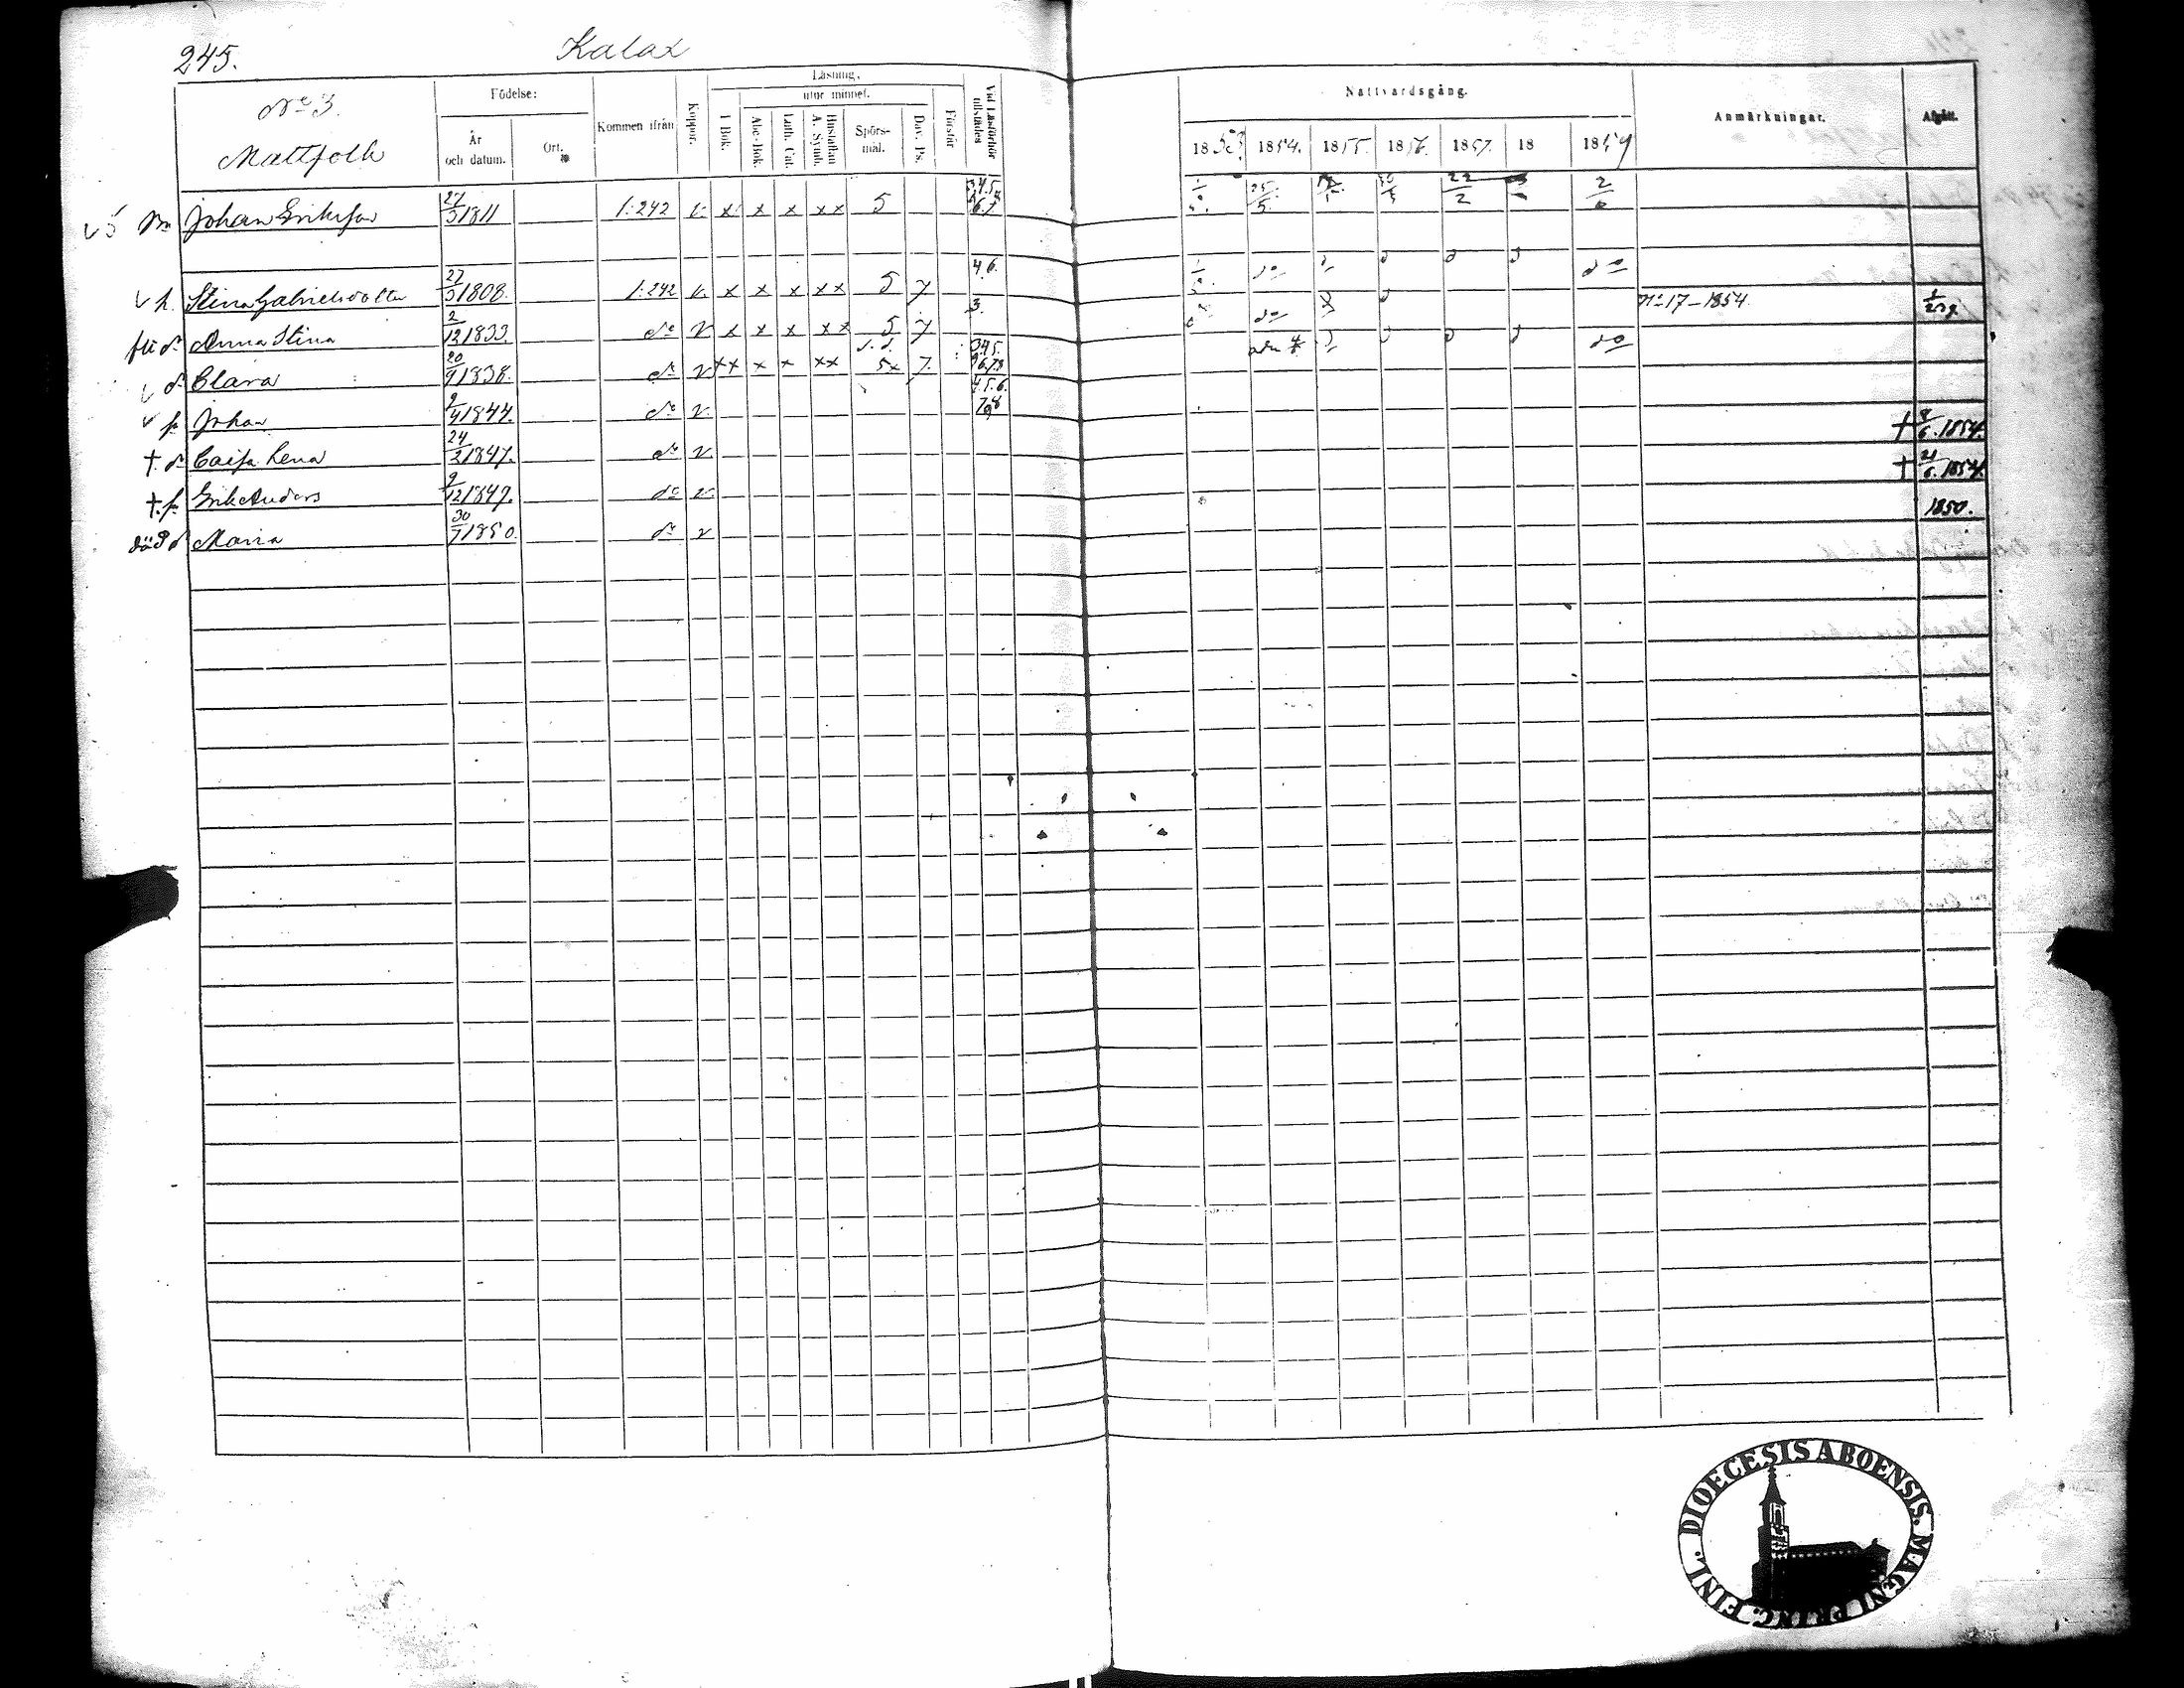 245. Kalax
No 3. Mattfolk
Födelse: År och datum. Ort. Kommen ifrån Koppor. Läsning, utur minnet. I Bok. Abc-Bok. Luth. Cat. Hustaflan A. Symb. Spörsmål. Dav. Ps. Förstår Vid Läsförhör tillstädes
Nattvardsgång. 1853 1854. 1855. 1856. 1857. 18 1859 Anmärkningar. Afgått.
Johan Eriksson 27/3 1811 1:242 v x x x xx 5 25/5 22/2
v h. Stina Gabrielsdotter 27/3 1808. 1:242 v. x x x xx 5 7 4.6. do do
d. Anna Stina 2/12 1833. do v x x x xx 5 7 3. do No 17-1854
v d. Clara 20/9 1838. do v xx x x xx 5x 7. do
v p. Johan 2/4 1844. do v
†. d. Caisa Lena 24/2 1847. do v † 8/6. 1854.
†. p. Erik Anders 9/12 1849. do v † 21/6. 1854.
död d Maria 30/7 1850. do v 1850.
FINL. DIOECESIS ABOENSIS. MAGNI PRINC.